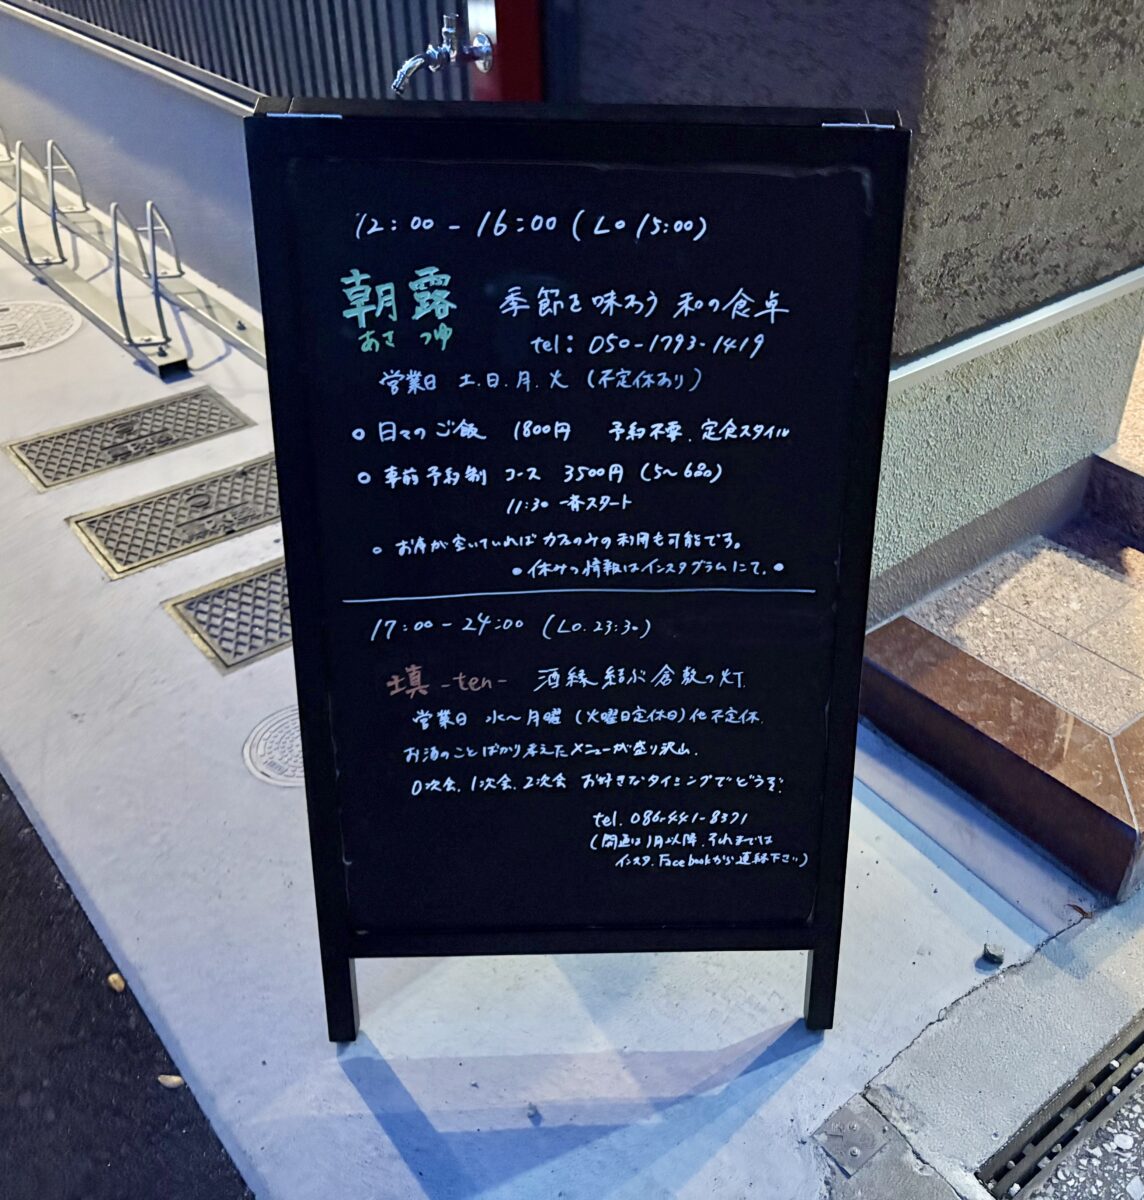 12:00 - 16:00 (LO 15:00)
朝露 季節を味わう 和の食卓
あさ つゆ
tel: 050-1793-1419
営業日 土.日.月.火 (不定休あり)
○ 日々のご飯 1800円 予約不要、定食スタイル
○ 事前予約制 コース 3500円 (5~6品)
11:30 一斉スタート
○ お席が空いていればカフェのみの利用も可能です。
● 休みの情報はインスタグラムにて。●
17:00 - 24:00 (LO.23:30)
填 -ten- 酒縁結ぶ倉敷の灯
営業日 水~月曜 (火曜日定休日)他不定休.
お酒のことばかり考えたメニューが盛り沢山.
0次会.1次会.2次会 お好きなタイミングでどうぞ.
tel. 086-441-8371
(開通は1月以降.それまでは
インスタ.Facebookから連絡下さい)